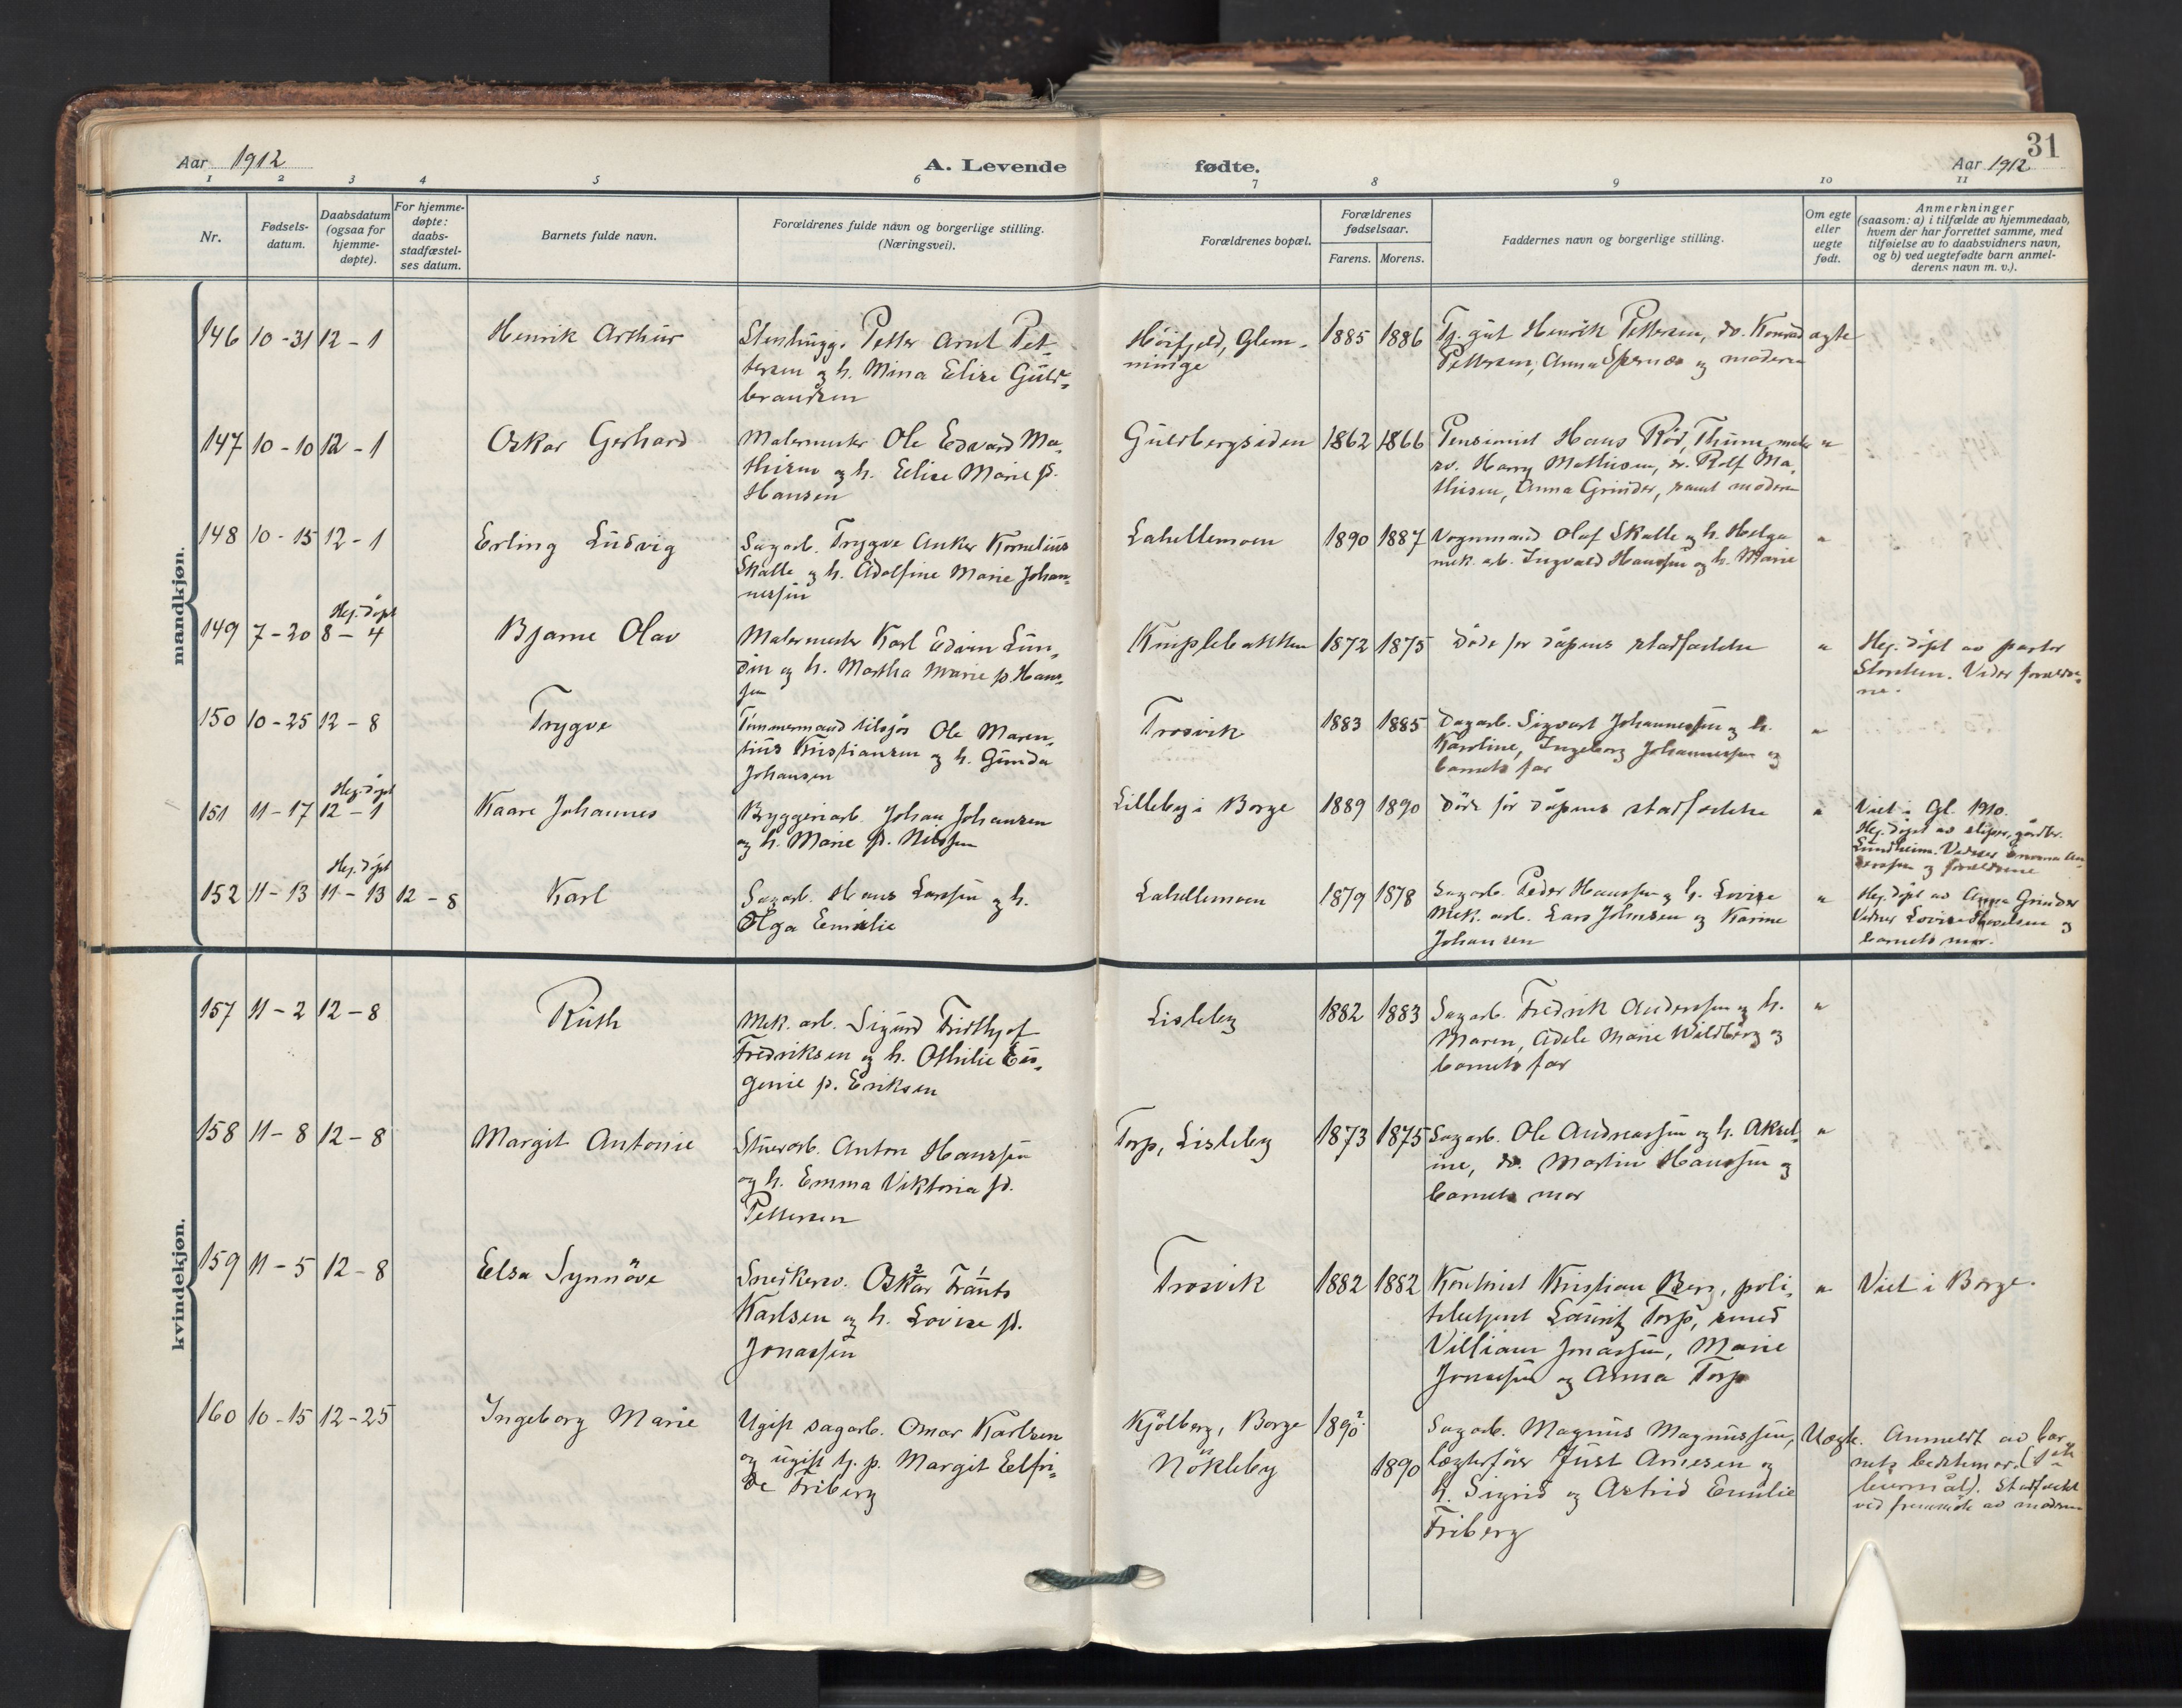 31
Aar 1912
A. Levende fødte.
Aar 1912
1 2 3 4 5 6 7 8 9 10 11
Nr.
Fødsels-
datum.
Daabsdatum
(ogsaa for
hjemme-
døpte).
For hjemme-
døpte:
daabs-
stadfæstel-
ses datum.
Barnets fulde navn.
Forældrenes fulde navn og borgerlige stilling.
(Næringsvei).
Forældrenes bopæl.
Forældrenes
fødselsaar.
Farens. Morens.
Faddernes navn og borgerlige stilling.
Om egte
eller
uegte
født.
Anmerkninger
(saasom: a) i tilfælde av hjemmedaab,
hvem der har forrettet samme, med
tilføielse av to daabsvidners navn,
og b) ved uegtefødte barn anmel-
derens navn m. v.).
mandkjøn.
146 10-31 12-1 Henrik Arthur
Stenhugg. Petter Arnt Pet-
tersen og h. Mina Elise Guld-
brandsen
Høifjeld, Glem-
minge
1885 1886
Tj. gut Henrik Pettersen, do. Konrad
Pettersen, Anna Spernæs og moderen
ægte
147 10-10 12-1 Oskar Gerhard
Malermester Ole Edvard Ma-
thisen og h. Elise Marie f.
Hansen
Guldbergsiden
1862 1866
Pensionist Hans Rød, Thune,
sv. Harry Mathisen, do. Rolf Ma-
thisen, Anna Grinder, samt moderen
"
148 10-15 12-1 Erling Ludvig
Sagarb. Trygve Anker Kornelius
Skalle og h. Adolfine Marie Johan-
nessen
Lahellemoen
1890 1887
Vognmand Olaf Skalle og h. Helga
mek. arb. Ingvald Hanssen og h. Marie
"
Hj. døpt
149 7-20 8-4 Bjarne Olav
Malermester Karl Edvin Lun-
din og h. Martha Marie f. Hans-
sen
Kniplebakken
1872 1875
Døde før dåpens stadfæstelse
"
Hj. døpt av pastor
Vidner forældre-
ne.
150 10-25 12-8 Trygve
Timmermand tilsjøs Ole Maren-
tius Kristiansen og h. Gunda
Johansen
Trosvik
1883 1885
Dagarb. Sigvart Johannessen og h.
Karoline, Ingeborg Johannessen og
barnets far
"
Hj. døpt
151 11-17 12-1 Kaare Johannes
Bryggeriarb. Johan Johansen
og h. Marie f. Nilssen
Lilleby i Borge
1889 1890
Døde før dåpens stadfæstelse
"
Viet i Gl. 1910.
Hj. døpt av
Sundheim. Vidner
og forældrene
Hj. døpt
152 11-13 11-13 12-8 Karl
Sagarb. Hans Larssen og h.
Olga Emilie
Lahellemoen
1879 1878
Sagarb. Peder Hanssen og h. Lovise
Mek. arb. Lars Johnsen og Karine
Johansen
"
Hj. døpt av Anna Grinder
Vidner Lovise og
barnets mor.
kvindekjøn.
157 11-2 12-8 Ruth
Mek. arb. Sigurd Fridthjof
Fredriksen og h. Othilie Eu-
genie f. Eriksen
Lisleby
1882 1883
Sagarb. Fredrik Anderssen og h.
Maren, Adele Marie Wildberg og
barnets far
"
158 11-8 12-8 Margit Antonie
Stuerarb. Anton Hanssen
og h. Emma Viktoria fd.
Pettersen
Torp, Lisleby
1873 1875
Sagarb. Ole Andreassen og h. Aksel-
ine, do. Martin Hanssen og
barnets mor
"
159 11-5 12-8 Elsa Synnöve
2 1
Snekkersv. Oskar Frants
Karlsen og h. Lovise fd.
Jonassen
Trosvik
1882 1882
Kontorist Kristian Berg, poli-
tibetjent Lauritz Torp, smed
Villiam Jonassen, Marie
Jonassen og Anna Torp
"
Viet i Borge.
160 10-15 12-25 Ingeborg Marie
Ugift sagarb. Omar Karlsen
og ugift tj. p. Margit Elfri-
de Friberg
Kjølberg, Borge
Nökleby
1892
1890
Sagarb. Magnus Magnussen,
lægterfører Just Arnesen og
h. Sigrid og Astrid Emilie
Friberg
Uægte.
Anmeldt av bar-
nets bedstemor. (1ste
leiermål). Stadfæstet
ved fremmøte av moderen